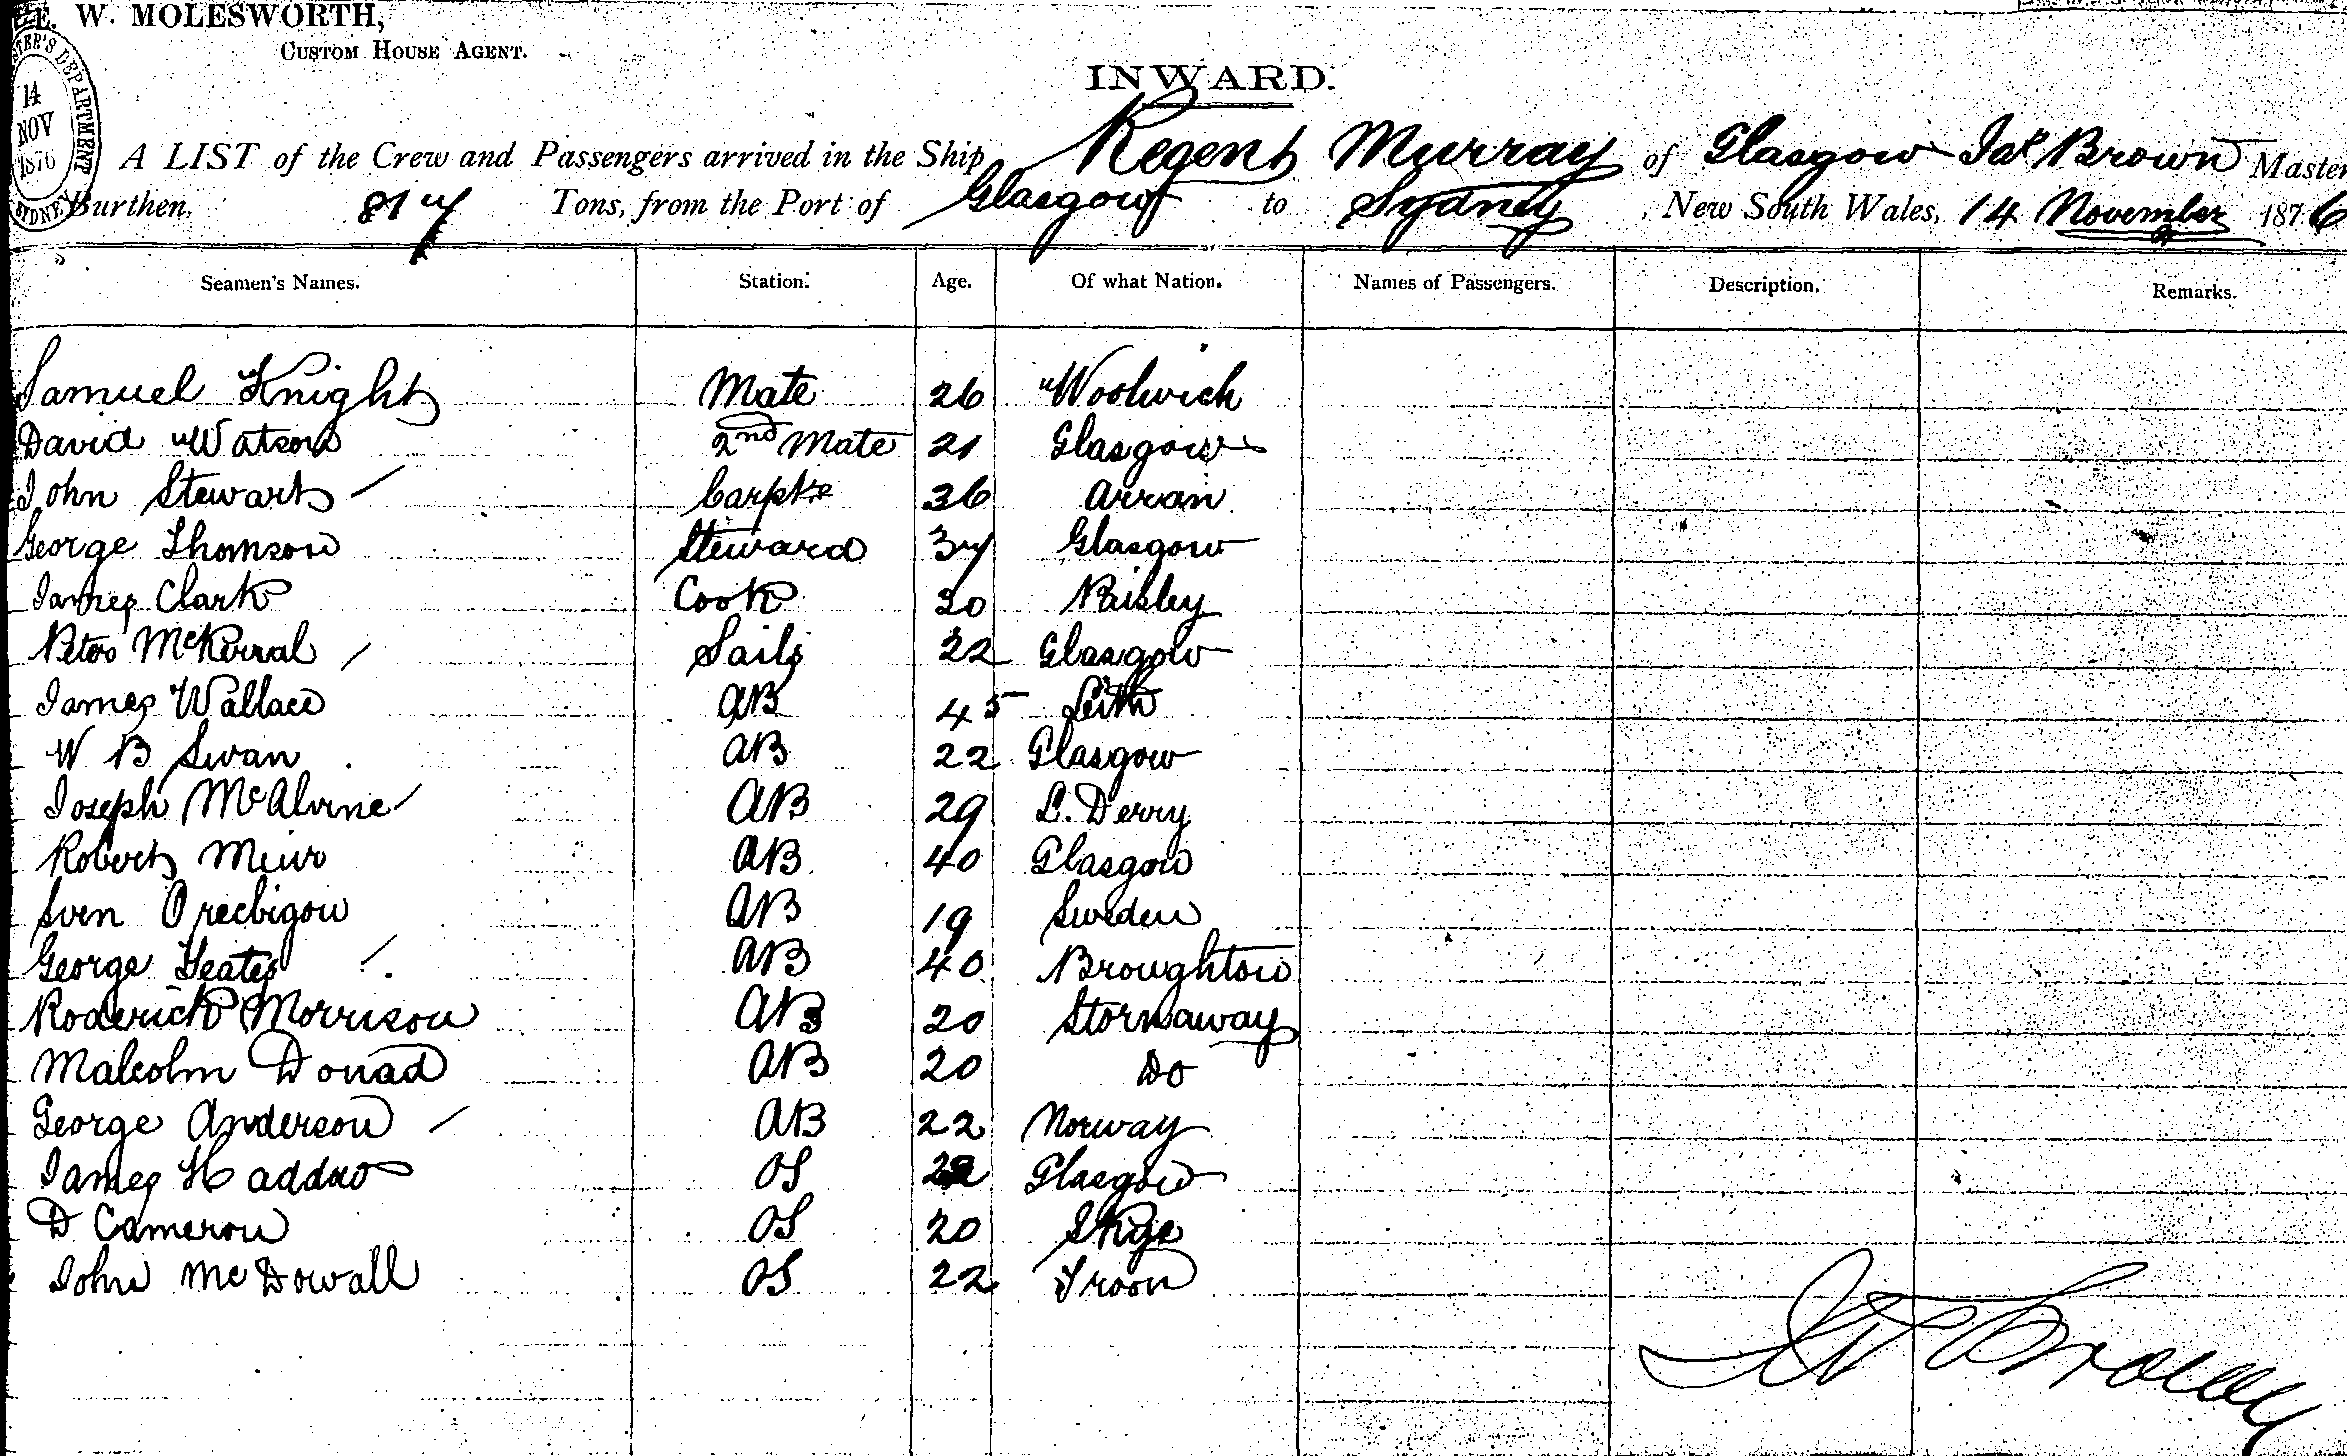 E. W. MOLESWORTH,
CUSTOM HOUSE AGENT.
14
NOV
1876
DEPARTMENT
SYDNEY
INWARD.
A LIST of the Crew and Passengers arrived in the Ship Regent Murray of Glasgow Jas Brown Master
Burthen, 817 Tons, from the Port of Glasgow to Sydney, New South Wales, 14 November 1876
Seamen's Names. Station. Age. Of what Nation. Names of Passengers. Description. Remarks.
Samuel Knight Mate 26 Woolwich
David Watson 2nd Mate 21 Glasgow
John Stewart Carptr 36 Arran
George Thomson Steward 37 Glasgow
James Clark Cook 30 Paisley
Peter McKerral Sails 22 Glasgow
James Wallace AB 45 Leith
W B Swan AB 22 Glasgow
Joseph McAlvine AB 29 L. Derry
Robert Muir AB 40 Glasgow
Sven AB 19 Sweden
George Yeates AB 40 Broughton
Roderick Morrison AB 20 Stornaway
Malcolm Donad AB 20 Do
George Anderson AB 22 Norway
James Haddow OS Glasgow
D Cameron OS 20 Skye
John McDowall OS 22 Troon
Brown